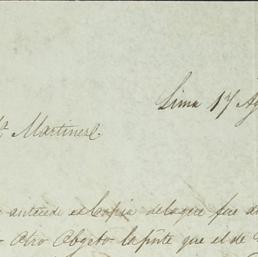 Lima 17 Ag
Martinez.
antecede es Copia de la que fue
Otro Obgeto la pnte que el de